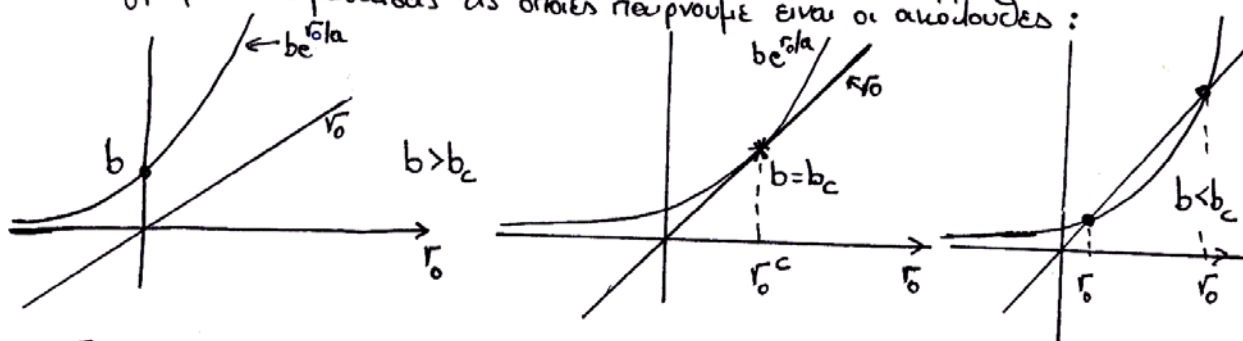 παραστάσεις τις οποίες παίρνουμε είναι οι ακόλουθες :
be^{r₀/a}
r₀
b
b>b_c
r₀
be^{r₀/a}
r₀
b=b_c
r₀^c
r₀
b<b_c
r₀
r₀